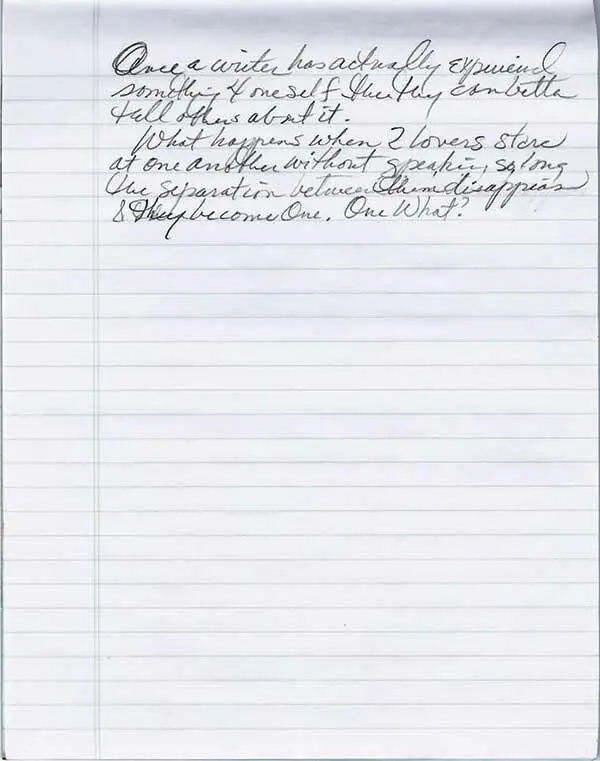 Once a writer has actually experiencd
something 4 oneself then they can better
tell others about it.
What happens when 2 lovers stare
at one another without speaking, so long
the separation between them disappears
& they become One. One What?